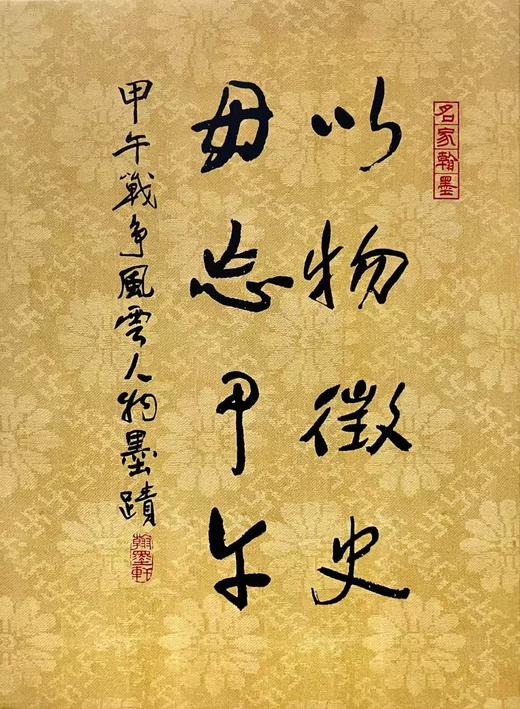 名家翰墨
以物徵史
毋忘甲午
甲午戰争風雲人物墨蹟
翰墨軒